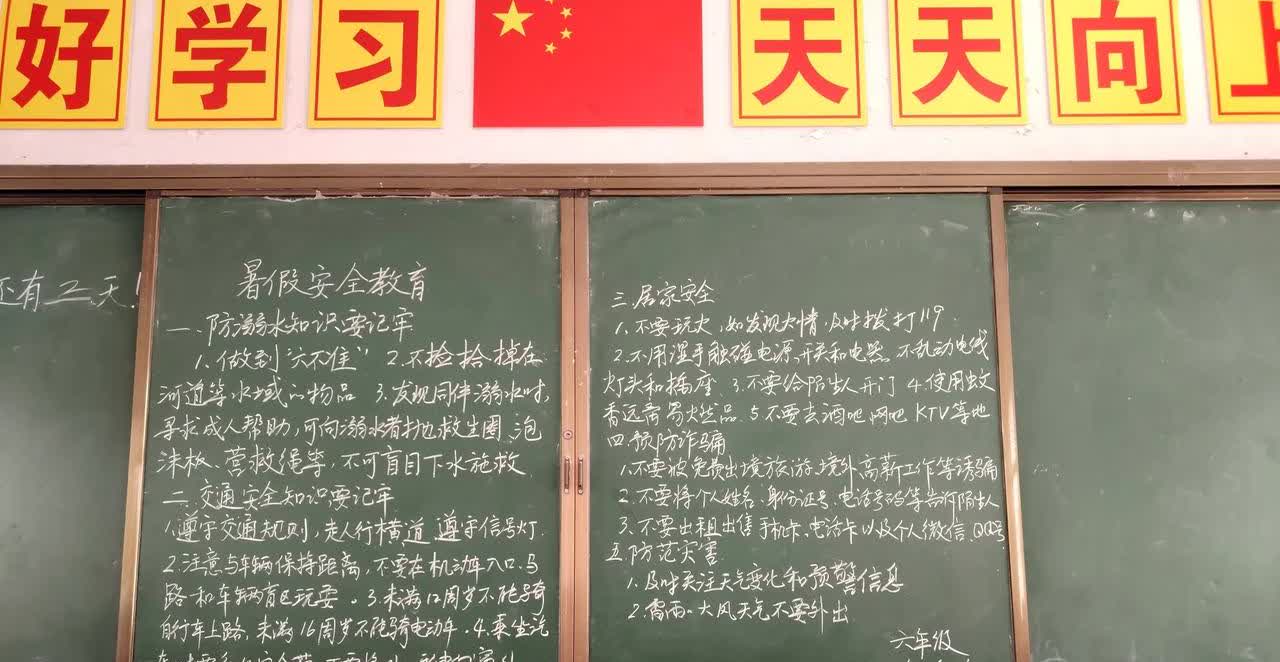 好学习 天天向上
还有二天!
暑假安全教育
一.防溺水知识要记牢
1.做到"六不准" 2.不捡拾掉在
河道等水域的物品 3.发现同伴溺水时,
寻求成人帮助,可向溺水者抛救生圈、泡
沫板、营救绳等,不可盲目下水施救
二.交通安全知识要记牢
1.遵守交通规则,走人行横道 遵守信号灯.
2.注意与车辆保持距离,不要在机动车入口、马
路和车辆盲区玩耍.3.未满12周岁不能骑
自行车上路,未满16周岁不能骑电动车.4.乘坐汽
三.居家安全
1.不要玩火,如发现火情,及时拨打119.
2.不用湿手触碰电源、开关和电器.不乱动电线
灯头和插座.3.不要给陌生人开门 4.使用蚊
香远离易燃品.5.不要去酒吧、网吧、KTV等地
四.预防诈骗
1.不要被免费出境旅游、境外高薪工作等诱骗
2.不要将个人姓名、身份证号、电话号码等告诉陌生人
3.不要出租出售手机卡、电话卡以及个人微信、QQ号
五.防范灾害
1.及时关注天气变化和预警信息
2.雷雨、大风天气不要外出
六年级